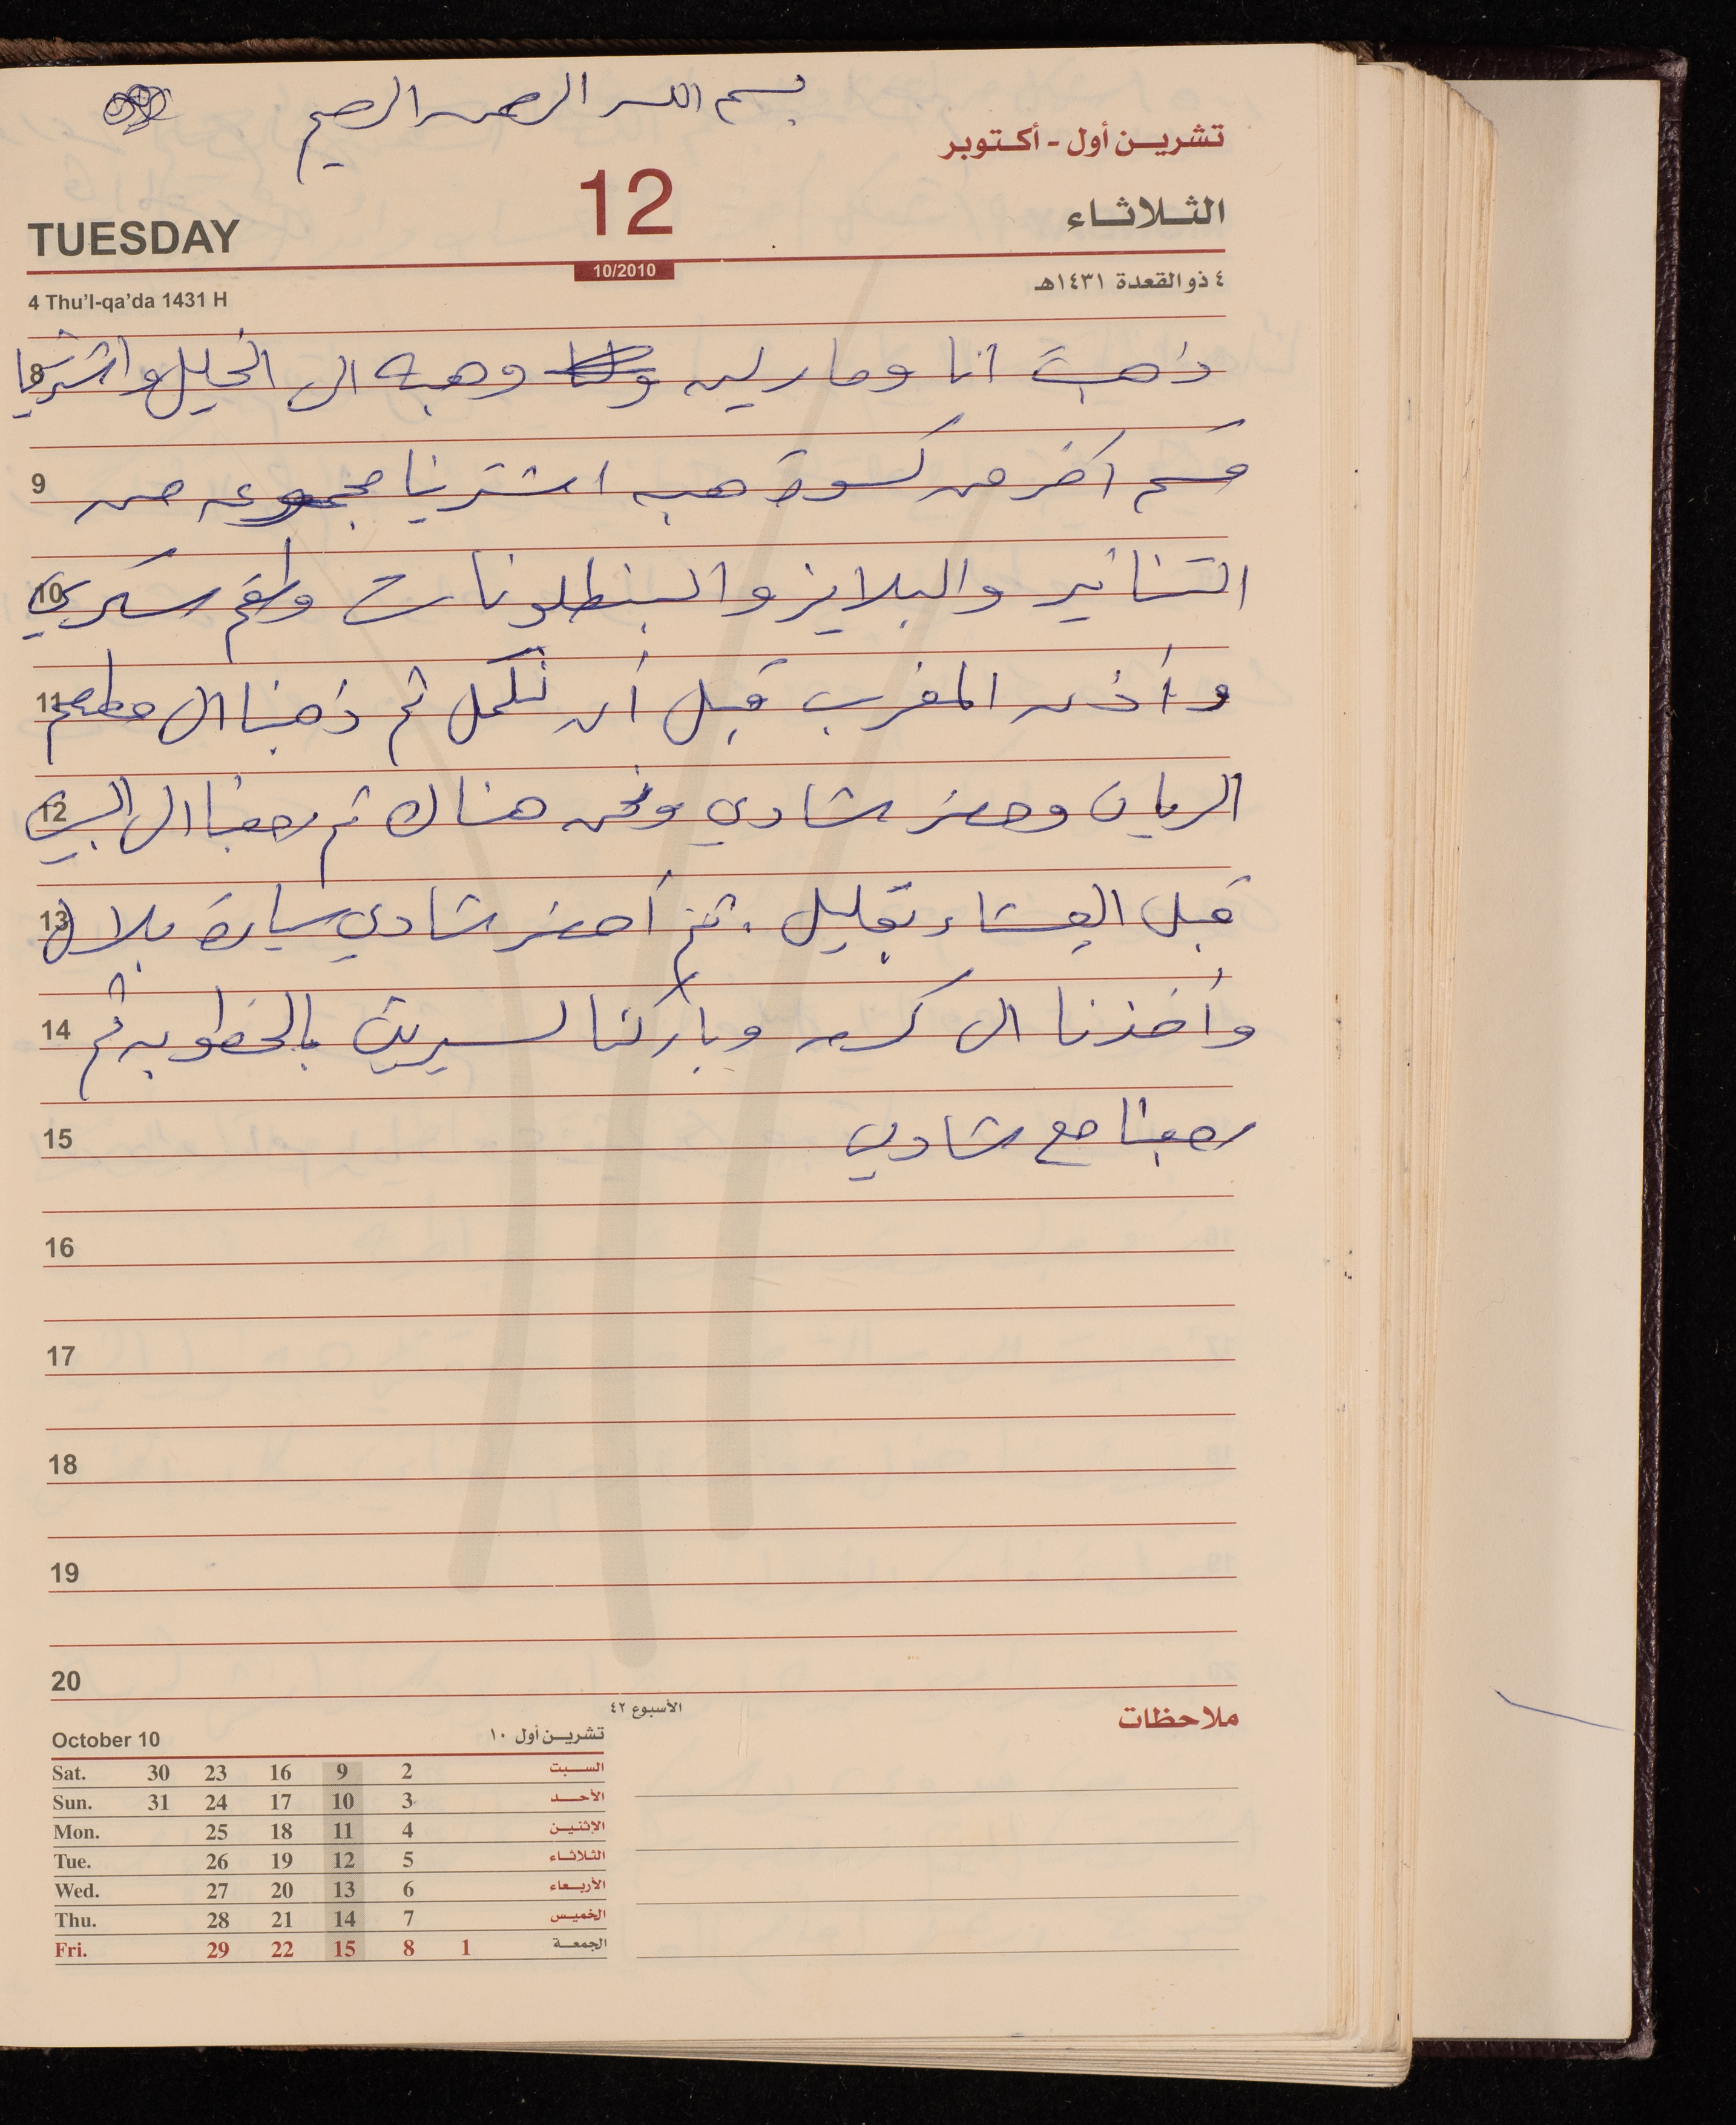 بسم الله الرحمن الرحيم
تشرين أول - أكتوبر
12
الثلاثاء
TUESDAY
10/2010
٤ ذو القعدة ١٤٣١هـ
4 Thu'l-qa'da 1431 H
8 ذهبت انا ومارلين وهبه الى الخليل واشترينا
9 قسم آخر من كسوة هبه اشترينا مجموعه من
10 التنانير والبلايز والبنطلونات وطقم سكري
11 وأذن المغرب قبل أن نكمل ثم ذهبنا الى مطعم
12 الريان وحضر شادي ونحن هناك ثم رجعنا الى البيت
13 قبل العشاء بقليل. ثم أحضر شادي سيارة بلال
14 وأخذنا الى كرمه وباركنا لسيرين بالخطوبه ثم
15 رجعنا مع شادي
16
17
18
19
20
الأسبوع ٤٢
ملاحظات
October 10 تشرين أول ١٠
Sat. 30 23 16 9 2 السبت
Sun. 31 24 17 10 3 الأحد
Mon. 25 18 11 4 الإثنين
Tue. 26 19 12 5 الثلاثاء
Wed. 27 20 13 6 الأربعاء
Thu. 28 21 14 7 الخميس
Fri. 29 22 15 8 1 الجمعة